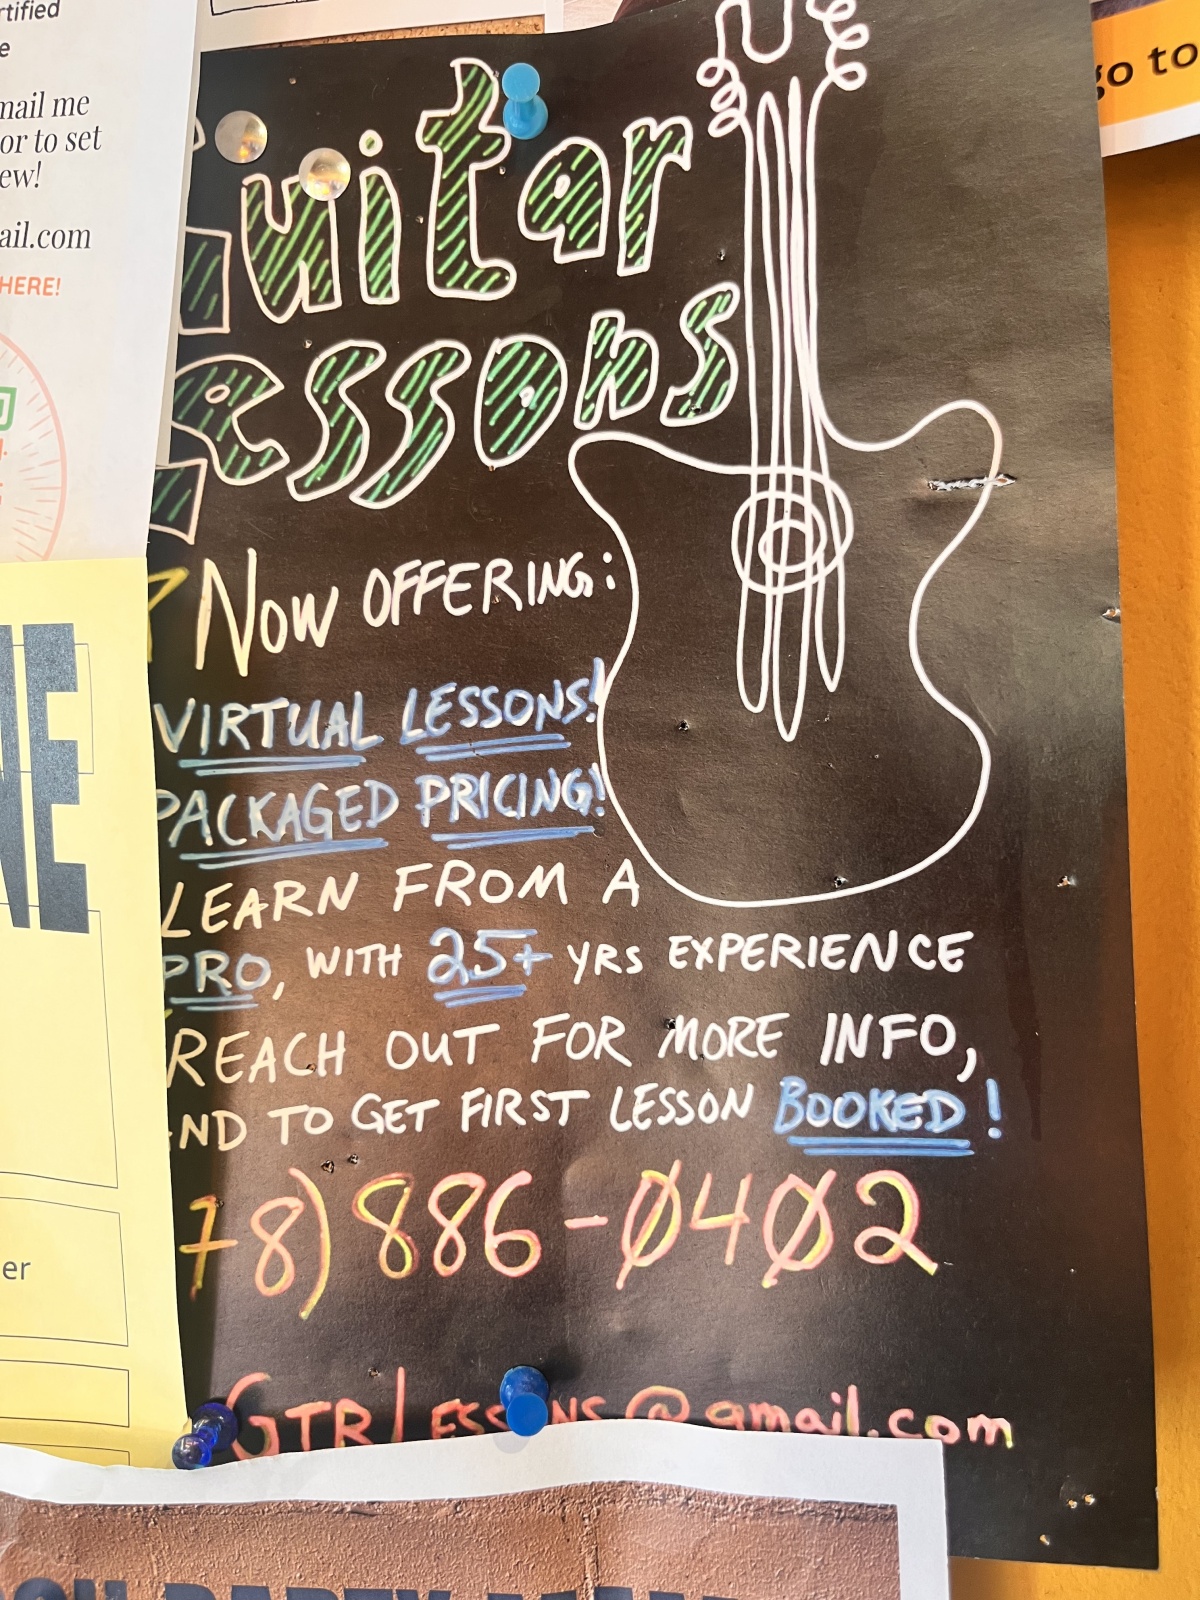 rtified
e
mail me
or to set
ew!
ail.com
HERE!
go to
Guitar
Lessons
Now OFFERING:
VIRTUAL LESSONS!
PACKAGED PRICING!
LEARN FROM A
PRO, WITH 25+ YRS EXPERIENCE
REACH OUT FOR MORE INFO,
ND TO GET FIRST LESSON BOOKED!
78) 886-0402
@gmail.com
NE
er